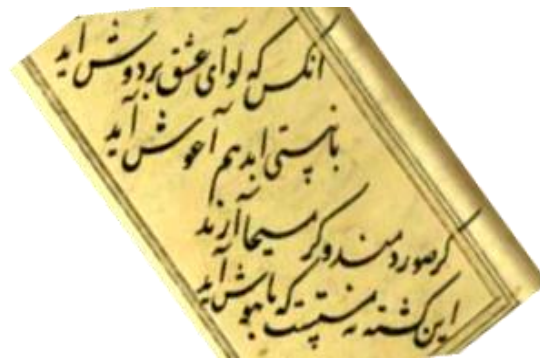 انکس که لوآی عشق بردوش اید
بانیستی ابد هم آغوش آید
کرصور دمند وکر مسیحا آرند
این کشته نه منیست که باهوش آید